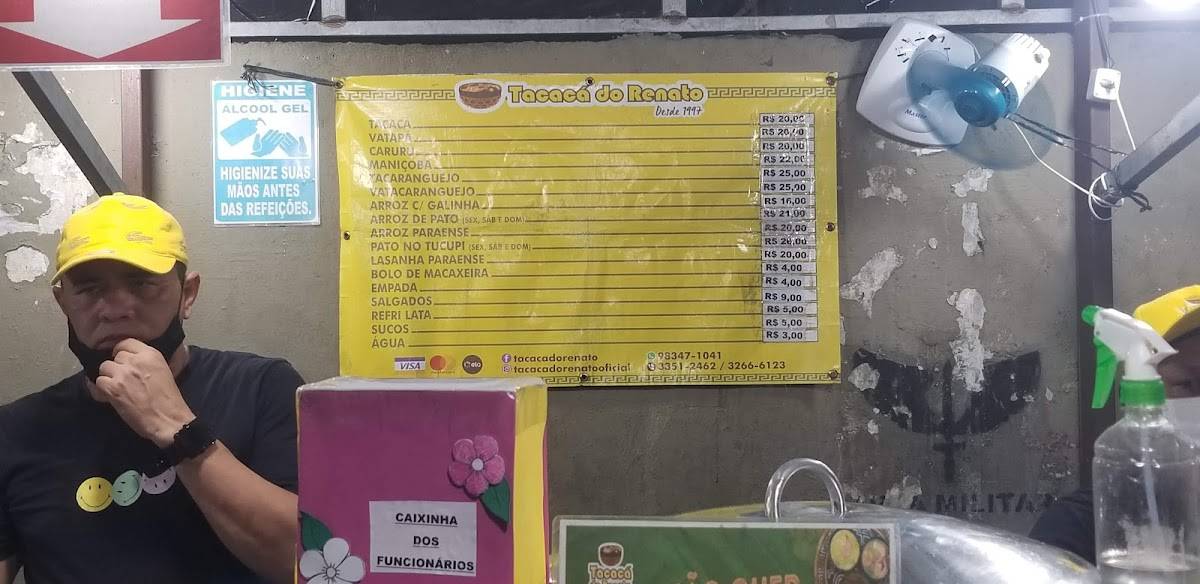 HIGIENE
ALCOOL GEL
HIGIENIZE SUAS
MÃOS ANTES
DAS REFEIÇÕES.
Tacacá do Renato
Desde 1997
TACACA R$ 20,00
VATAPÁ R$ 20,00
CARURU R$ 20,00
MANIÇOBA R$ 22,00
TACARANGUEJO R$ 25,00
VATACARANGUEJO R$ 25,90
ARROZ C/ GALINHA R$ 16,00
ARROZ DE PATO (SEX, SAB E DOM) R$ 21,00
ARROZ PARAENSE R$ 20,00
PATO NO TUCUPÍ (SEX, SAB E DOM) R$ 26,00
LASANHA PARAENSE R$ 20,00
BOLO DE MACAXEIRA R$ 4,00
EMPADA R$ 4,00
SALGADOS R$ 9,00
REFRI LATA R$ 5,00
SUCOS R$ 5,00
ÁGUA R$ 3,00
VISA elo
tacacadorenato
tacacadorenatooficial
98347-1041
3351-2462 / 3266-6123
CAIXINHA
DOS
FUNCIONÁRIOS
Tacacá
A MILITAR